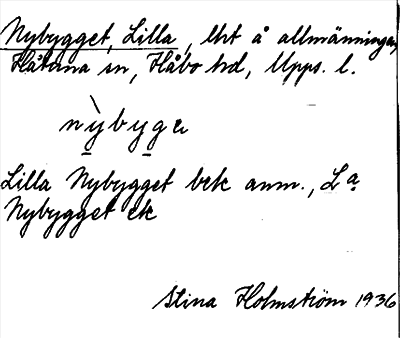 Nybygget, Lilla, lht å allmänningen,
Håtuna sn, Håbo hd, Upps. l.
nỳbygε
Lilla Nybygget bek anm., La
Nybygget ek
Stina Holmström 1936